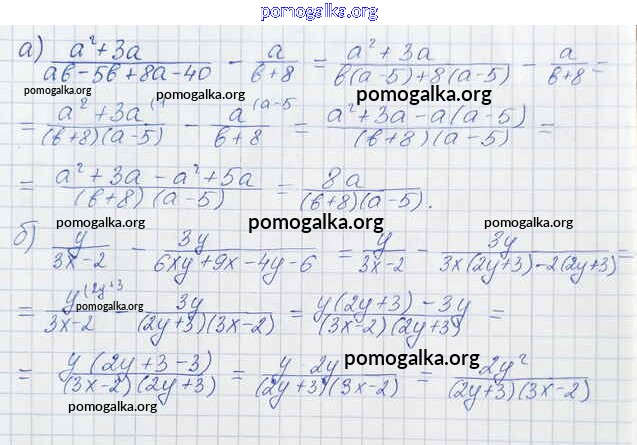 pomogalka.org
а) (a² + 3a)/(ab - 5b + 8a - 40) - a/(b + 8) = (a² + 3a)/(b(a - 5) + 8(a - 5)) - a/(b + 8) =
pomogalka.org pomogalka.org pomogalka.org
= (a² + 3a)/((b + 8)(a - 5)) ⁽¹ - a/(b + 8) ⁽ᵃ⁻⁵ = (a² + 3a - a(a - 5))/((b + 8)(a - 5)) =
= (a² + 3a - a² + 5a)/((b + 8)(a - 5)) = 8a/((b + 8)(a - 5)).
pomogalka.org pomogalka.org pomogalka.org
б) y/(3x - 2) - 3y/(6xy + 9x - 4y - 6) = y/(3x - 2) - 3y/(3x(2y + 3) - 2(2y + 3)) =
= y/(3x - 2) ⁽²ʸ⁺³ - 3y/((2y + 3)(3x - 2)) = (y(2y + 3) - 3y)/((3x - 2)(2y + 3)) =
= y(2y + 3 - 3)/((3x - 2)(2y + 3)) = y 2y/((2y + 3)(3x - 2)) = 2y²/((2y + 3)(3x - 2))
pomogalka.org
pomogalka.org